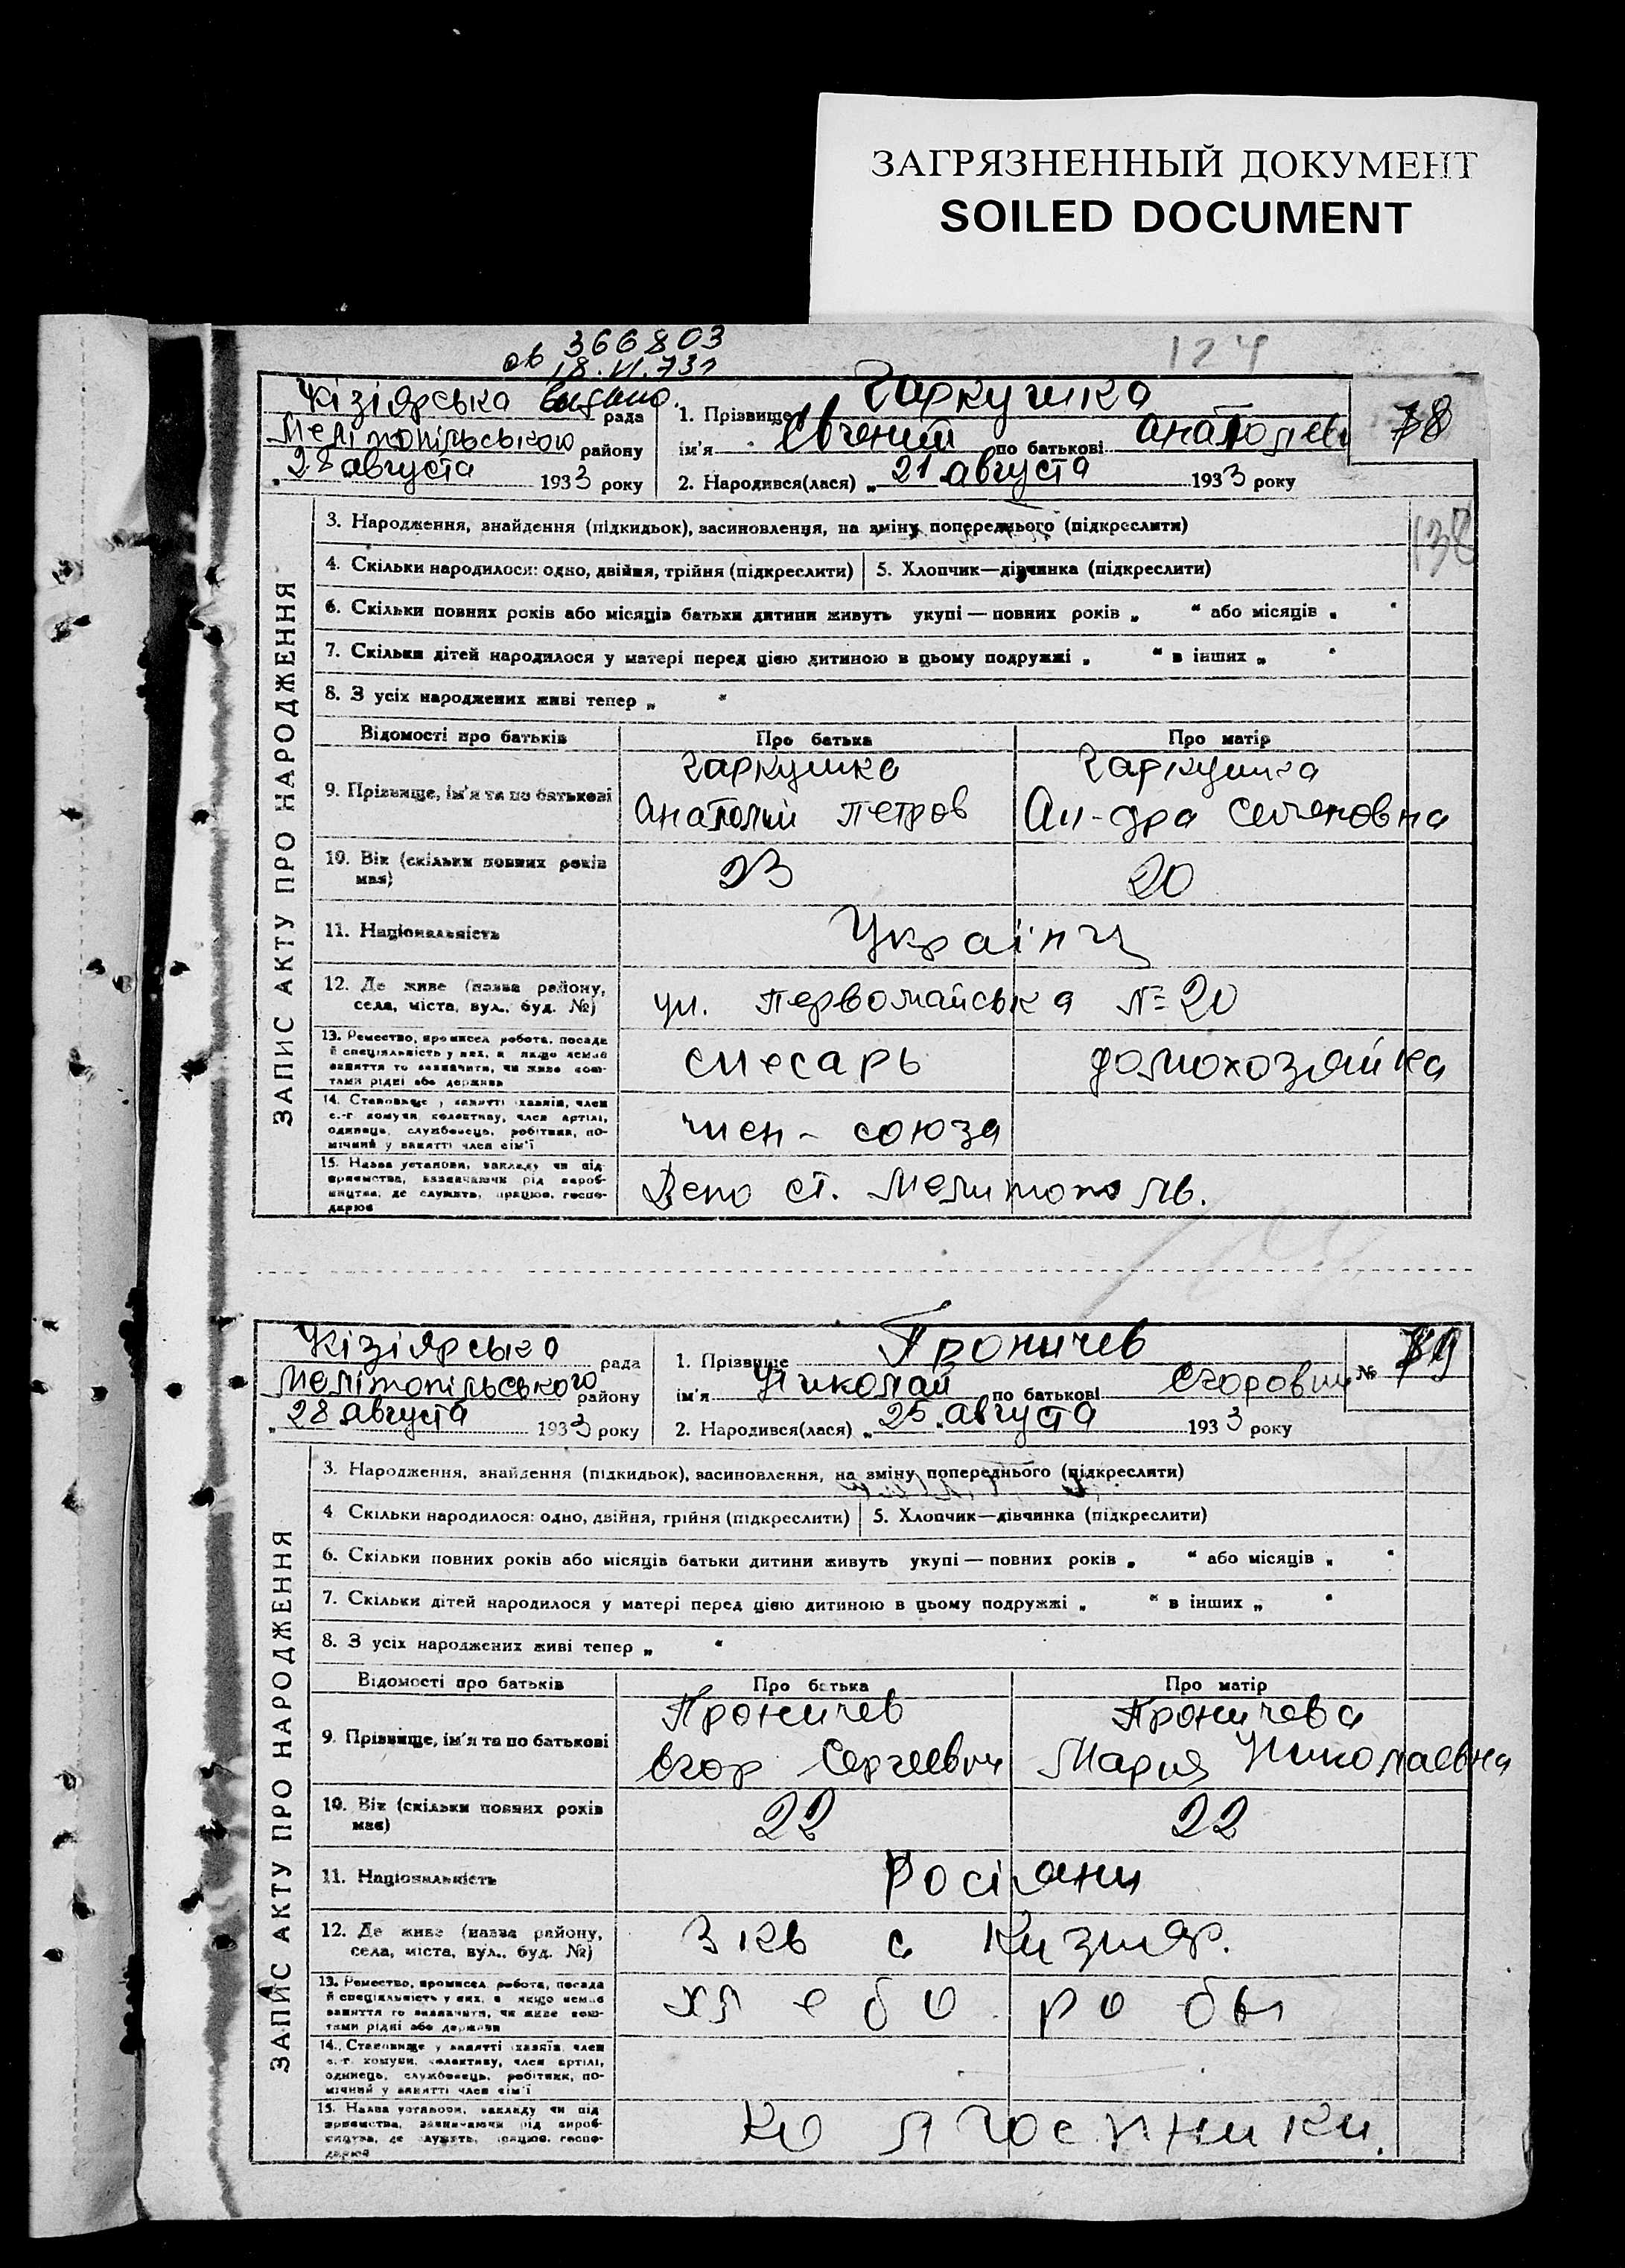 ЗАГРЯЗНЕННЫЙ ДОКУМЕНТ
SOILED DOCUMENT
366803
18.VI.73
124
Кізіярська рада
Мелітопільського району
28 августа 1933 року
1. Прізвище Гаркушка
ім'я Євгений по батькові Анатолеви
78
2. Народився(лася) „ 21 августа 1933 року
138
ЗАПИС АКТУ ПРО НАРОДЖЕННЯ
3. Народження, знайдення (підкидьок), засиновлення, на зміну попереднього (підкреслити)
4. Скільки народилося: одно, двійня, трійня (підкреслити) 5. Хлопчик—дівчинка (підкреслити)
6. Скільки повних років або місяців батьки дитини живуть укупі — повних років „ “ або місяців „ “
7. Скільки дітей народилося у матері перед цією дитиною в цьому подружжі „ “ в інших „ “
8. З усіх народжених живі тепер „ “
Відомості про батьків Про батька Про матір
9. Прізвище, ім'я та по батькові
Гаркушка Гаркушка
Анатолий Петров Ал-дра Семеновна
10. Вік (скільки повних років має) 23 20
11. Національність Українці
12. Де живе (назва району, села, міста, вул., буд. №) ул. Первомайська №20
13. Ремество, промисел, робота, посада й спеціяльність у них, а якщо немає заняття то зазначити, чи живе коштами рідні або держави
слесарь домохозяйка
14. Становище у занятті: хазяїн, член с.-г. комуни, колективу, член артілі, одинець, службовець, робітник, помічний у занятті член сім'ї
член - союза
15. Назва установи, закладу чи підприємства, зазначаючи рід виробництва, де служить, працює, господарює
Депо ст. Мелитополь.
Кізіярська рада
Мелітопільського району
28 августа 1933 року
1. Прізвище Проничев
ім'я Николай по батькові Єгорович
№ 79
2. Народився(лася) „ 25 „ августа 1933 року
ЗАПИС АКТУ ПРО НАРОДЖЕННЯ
3. Народження, знайдення (підкидьок), засиновлення, на зміну попереднього (підкреслити)
4. Скільки народилося: одно, двійня, трійня (підкреслити) 5. Хлопчик—дівчинка (підкреслити)
6. Скільки повних років або місяців батьки дитини живуть укупі — повних років „ “ або місяців „ “
7. Скільки дітей народилося у матері перед цією дитиною в цьому подружжі „ “ в інших „ “
8. З усіх народжених живі тепер „ “
Відомості про батьків Про батька Про матір
9. Прізвище, ім'я та по батькові
Проничев Проничева
Егор Сергеевич Мария Николаевна
10. Вік (скільки повних років має) 22 22
11. Національність Росіяни
12. Де живе (назва району, села, міста, вул., буд. №) 3 кв с Кизияр.
13. Ремество, промисел, робота, посада й спеціяльність у них, а якщо немає заняття то зазначити, чи живе коштами рідні або держави
хлеборобы
14. Становище у занятті: хазяїн, член с.-г. комуни, колективу, член артілі, одинець, службовець, робітник, помічний у занятті член сім'ї
15. Назва установи, закладу чи підприємства, зазначаючи рід виробництва, де служить, працює, господарює
колгоспники.